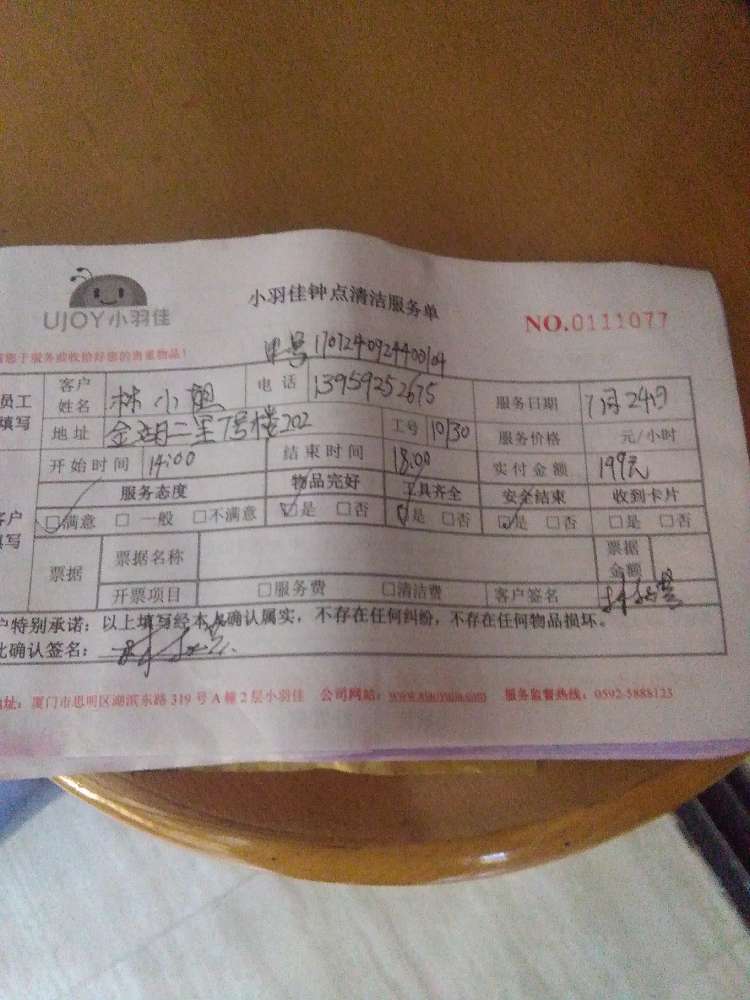 UJOY小羽佳
小羽佳钟点清洁服务单
NO.0111077
您于服务验收恰好您的贵重物品!
单号1707240924400104
员工填写
客户姓名 林小姐 电话 13959252675 服务日期 7月24日
地址 金湖二里7号楼202 工号 10130 服务价格 元/小时
开始时间 14:00 结束时间 18:00 实付金额 199元
服务态度 物品完好 工具齐全 安全结束 收到卡片
☑满意 □一般 □不满意 ☑是 □否 ☑是 □否 ☑是 □否 □是 □否
票据 票据名称 票据金额
开票项目 □服务费 □清洁费 客户签名
户特别承诺:以上填写经本人确认属实,不存在任何纠纷,不存在任何物品损坏。
此确认签名:
地址:厦门市思明区湖滨东路319号A幢2层小羽佳 公司网站:www.xiaoyujia.com 服务监督热线:0592-5888123